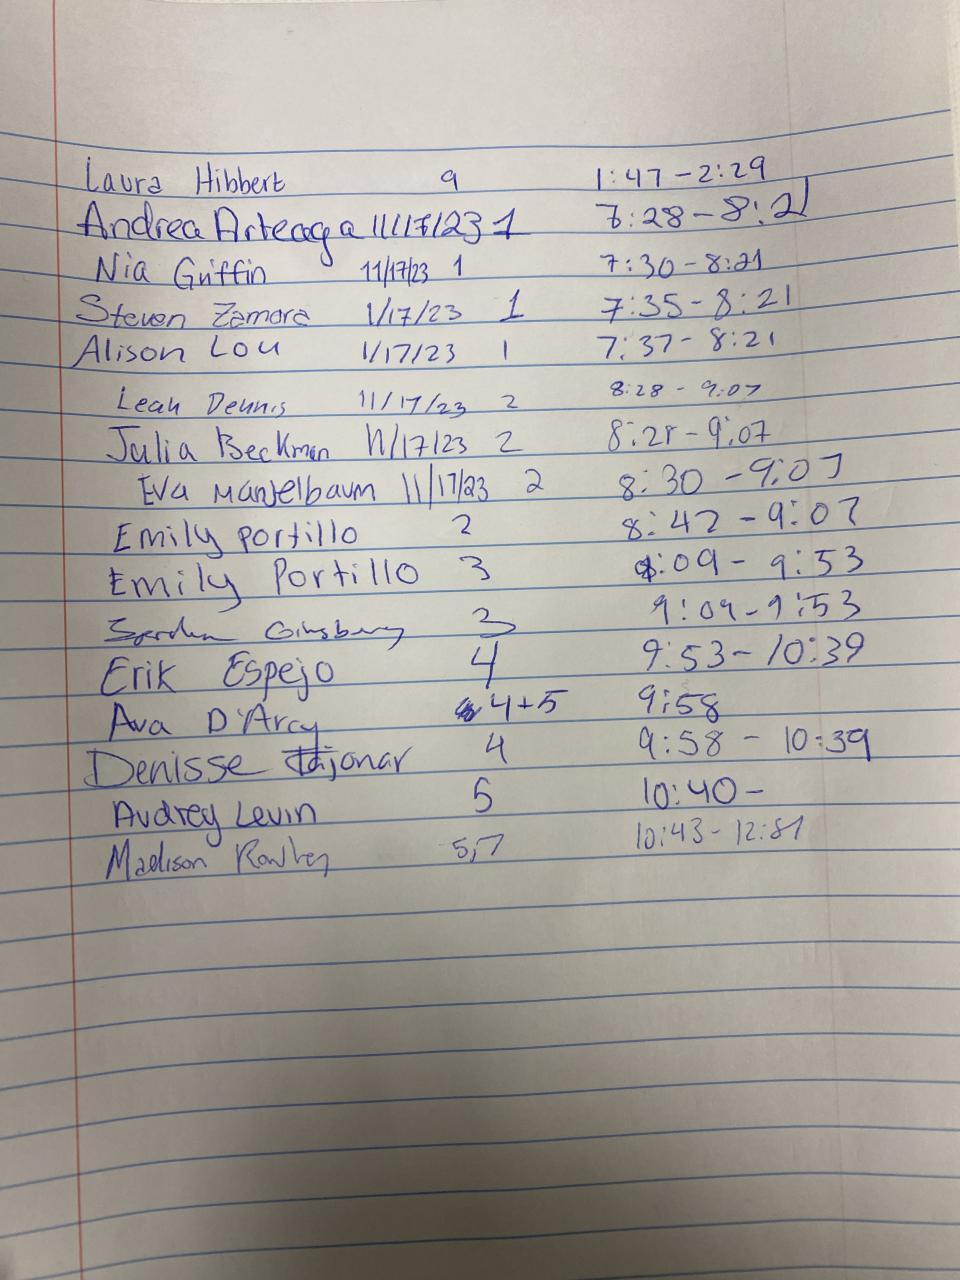 Laura Hibbert 9 1:47-2:29
Andrea Arteaga 11/17/23 1 7:28-8:21
Nia Griffin 11/17/23 1 7:30-8:21
Steven Zamora 1/17/23 1 7:35-8:21
Alison Lou 1/17/23 1 7:37-8:21
Leah Dennis 11/17/23 2 8:28-9:07
Julia Beckman 11/17/23 2 8:28-9:07
Eva Mantelbaum 11/17/23 2 8:30-9:07
Emily Portillo 2 8:42-9:07
Emily Portillo 3 9:09-9:53
Ginsberg 3 9:09-9:53
Erik Espejo 4 9:53-10:39
Ava D'Arcy 4+5 9:58
Denisse 4 9:58-10:39
Audrey Levin 5 10:40-
Madison 5,7 10:43-